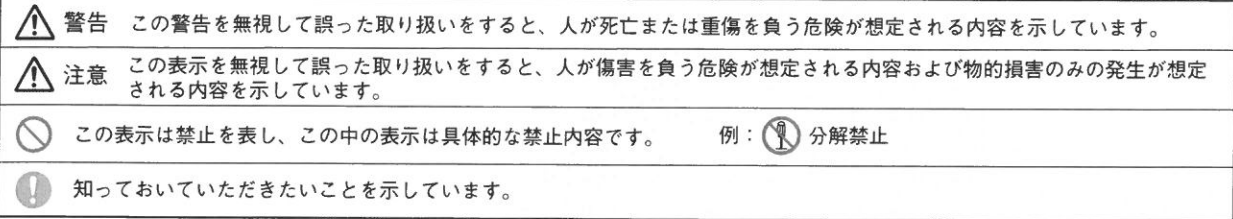 警告 この警告を無視して誤った取り扱いをすると、人が死亡または重傷を負う危険が想定される内容を示しています。
注意 この表示を無視して誤った取り扱いをすると、人が傷害を負う危険が想定される内容および物的損害のみの発生が想定
される内容を示しています。
この表示は禁止を表し、この中の表示は具体的な禁止内容です。 例： 分解禁止
知っておいていただきたいことを示しています。